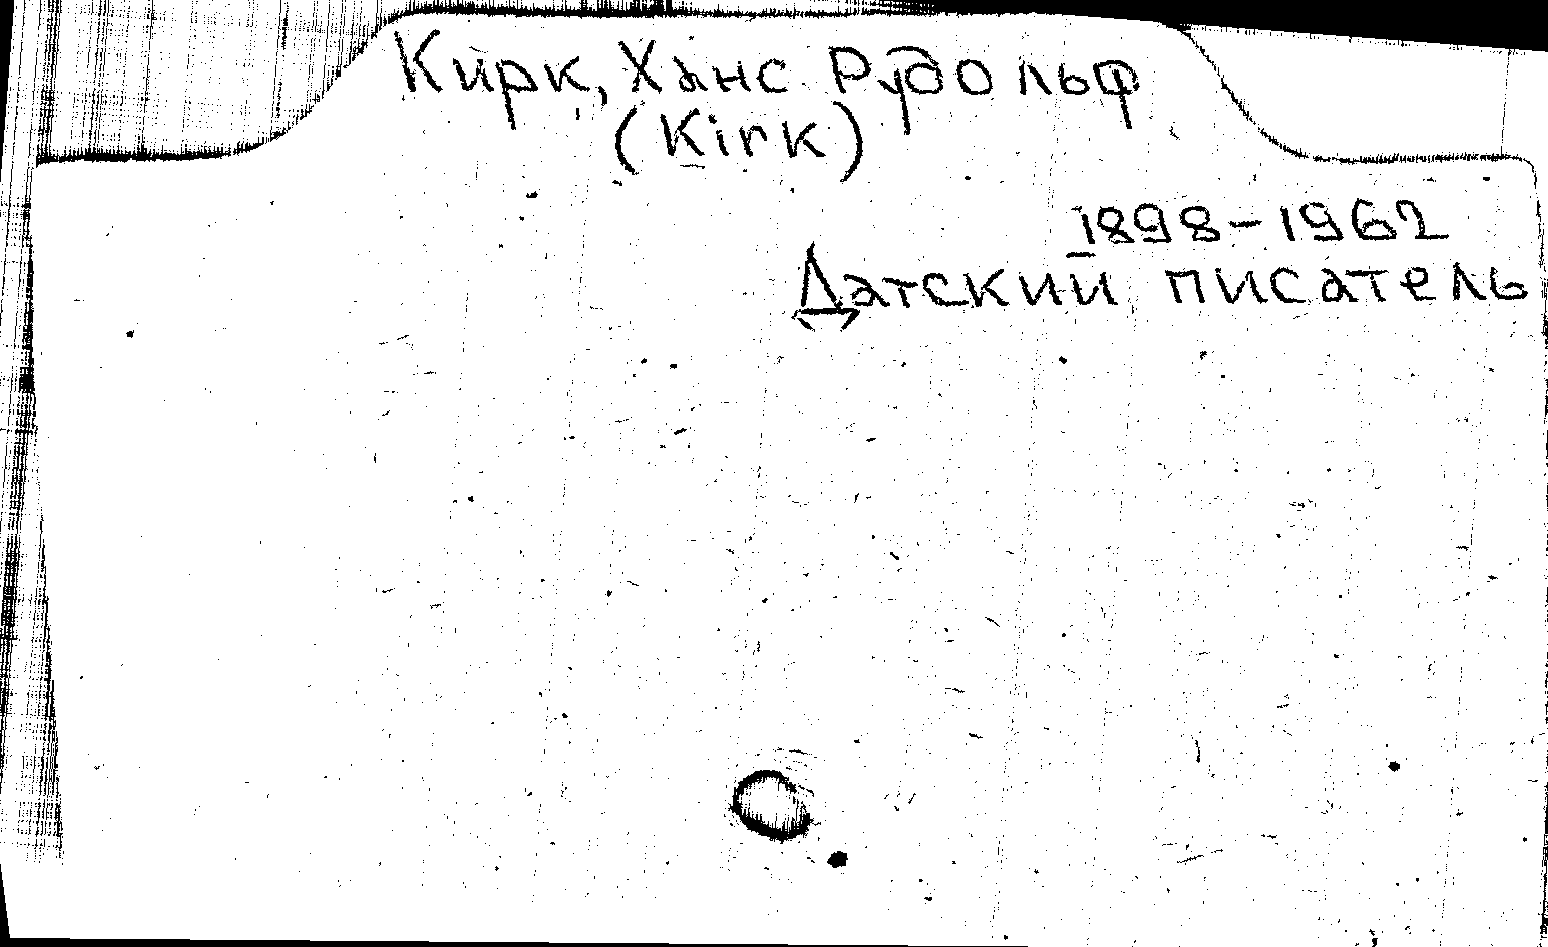 Кирк, Ханс Рудольф
(Kirk)
1898-1962
Датский писатель